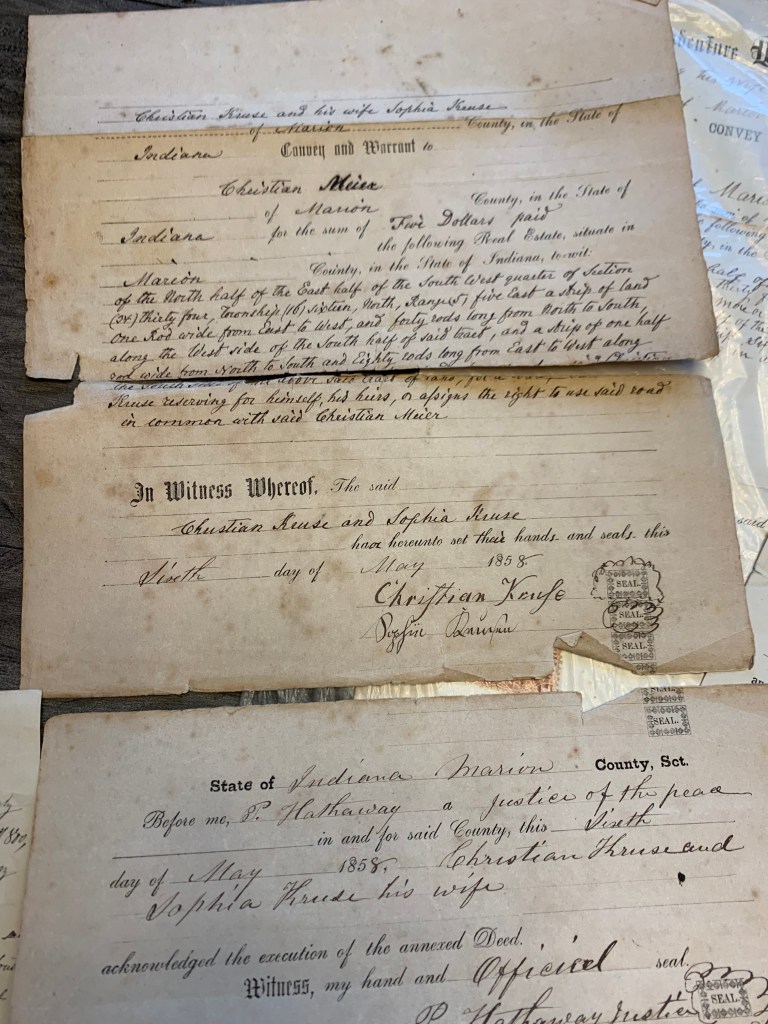 Christian Kruse and his wife Sophia Kruse
of Marion County, in the State of
Indiana Convey and Warrant to
Christian Meier
of Marion County, in the State of
Indiana for the sum of Five Dollars paid
the following Real Estate, situate in
Marion County, in the State of Indiana, to-wit:
of the North half of the East half of the South West quarter of Section
(34) thirty four, Township (16) sixteen, North, Range (5) five East a strip of land
one Rod wide from East to West, and forty rods long from North to South,
along the West side of the South half of said tract, and a strip of one half
rod wide from North to South and Eighty rods long from East to West along
the South side of the above said tract of land, for a
Kruse reserving for himself, his heirs, or assigns the right to use said road
in common with said Christian Meier
In Witness Whereof, The said
Christian Kruse and Sophia Kruse
have hereunto set their hands and seals this
Sixeth day of May 1858
Christian Kruse SEAL.
Sophie SEAL.
SEAL.
SEAL.
State of Indiana Marion County, Sct.
Before me, P. Hathaway a justice of the peace
in and for said County, this Sixeth
day of May 1858, Christian Kruse and
Sophia Kruse his wife
acknowledged the execution of the annexed Deed.
Witness, my hand and Official seal.
P. Hathaway Justice SEAL.
denture
his wife
Marion
CONVEY
following
half of
said